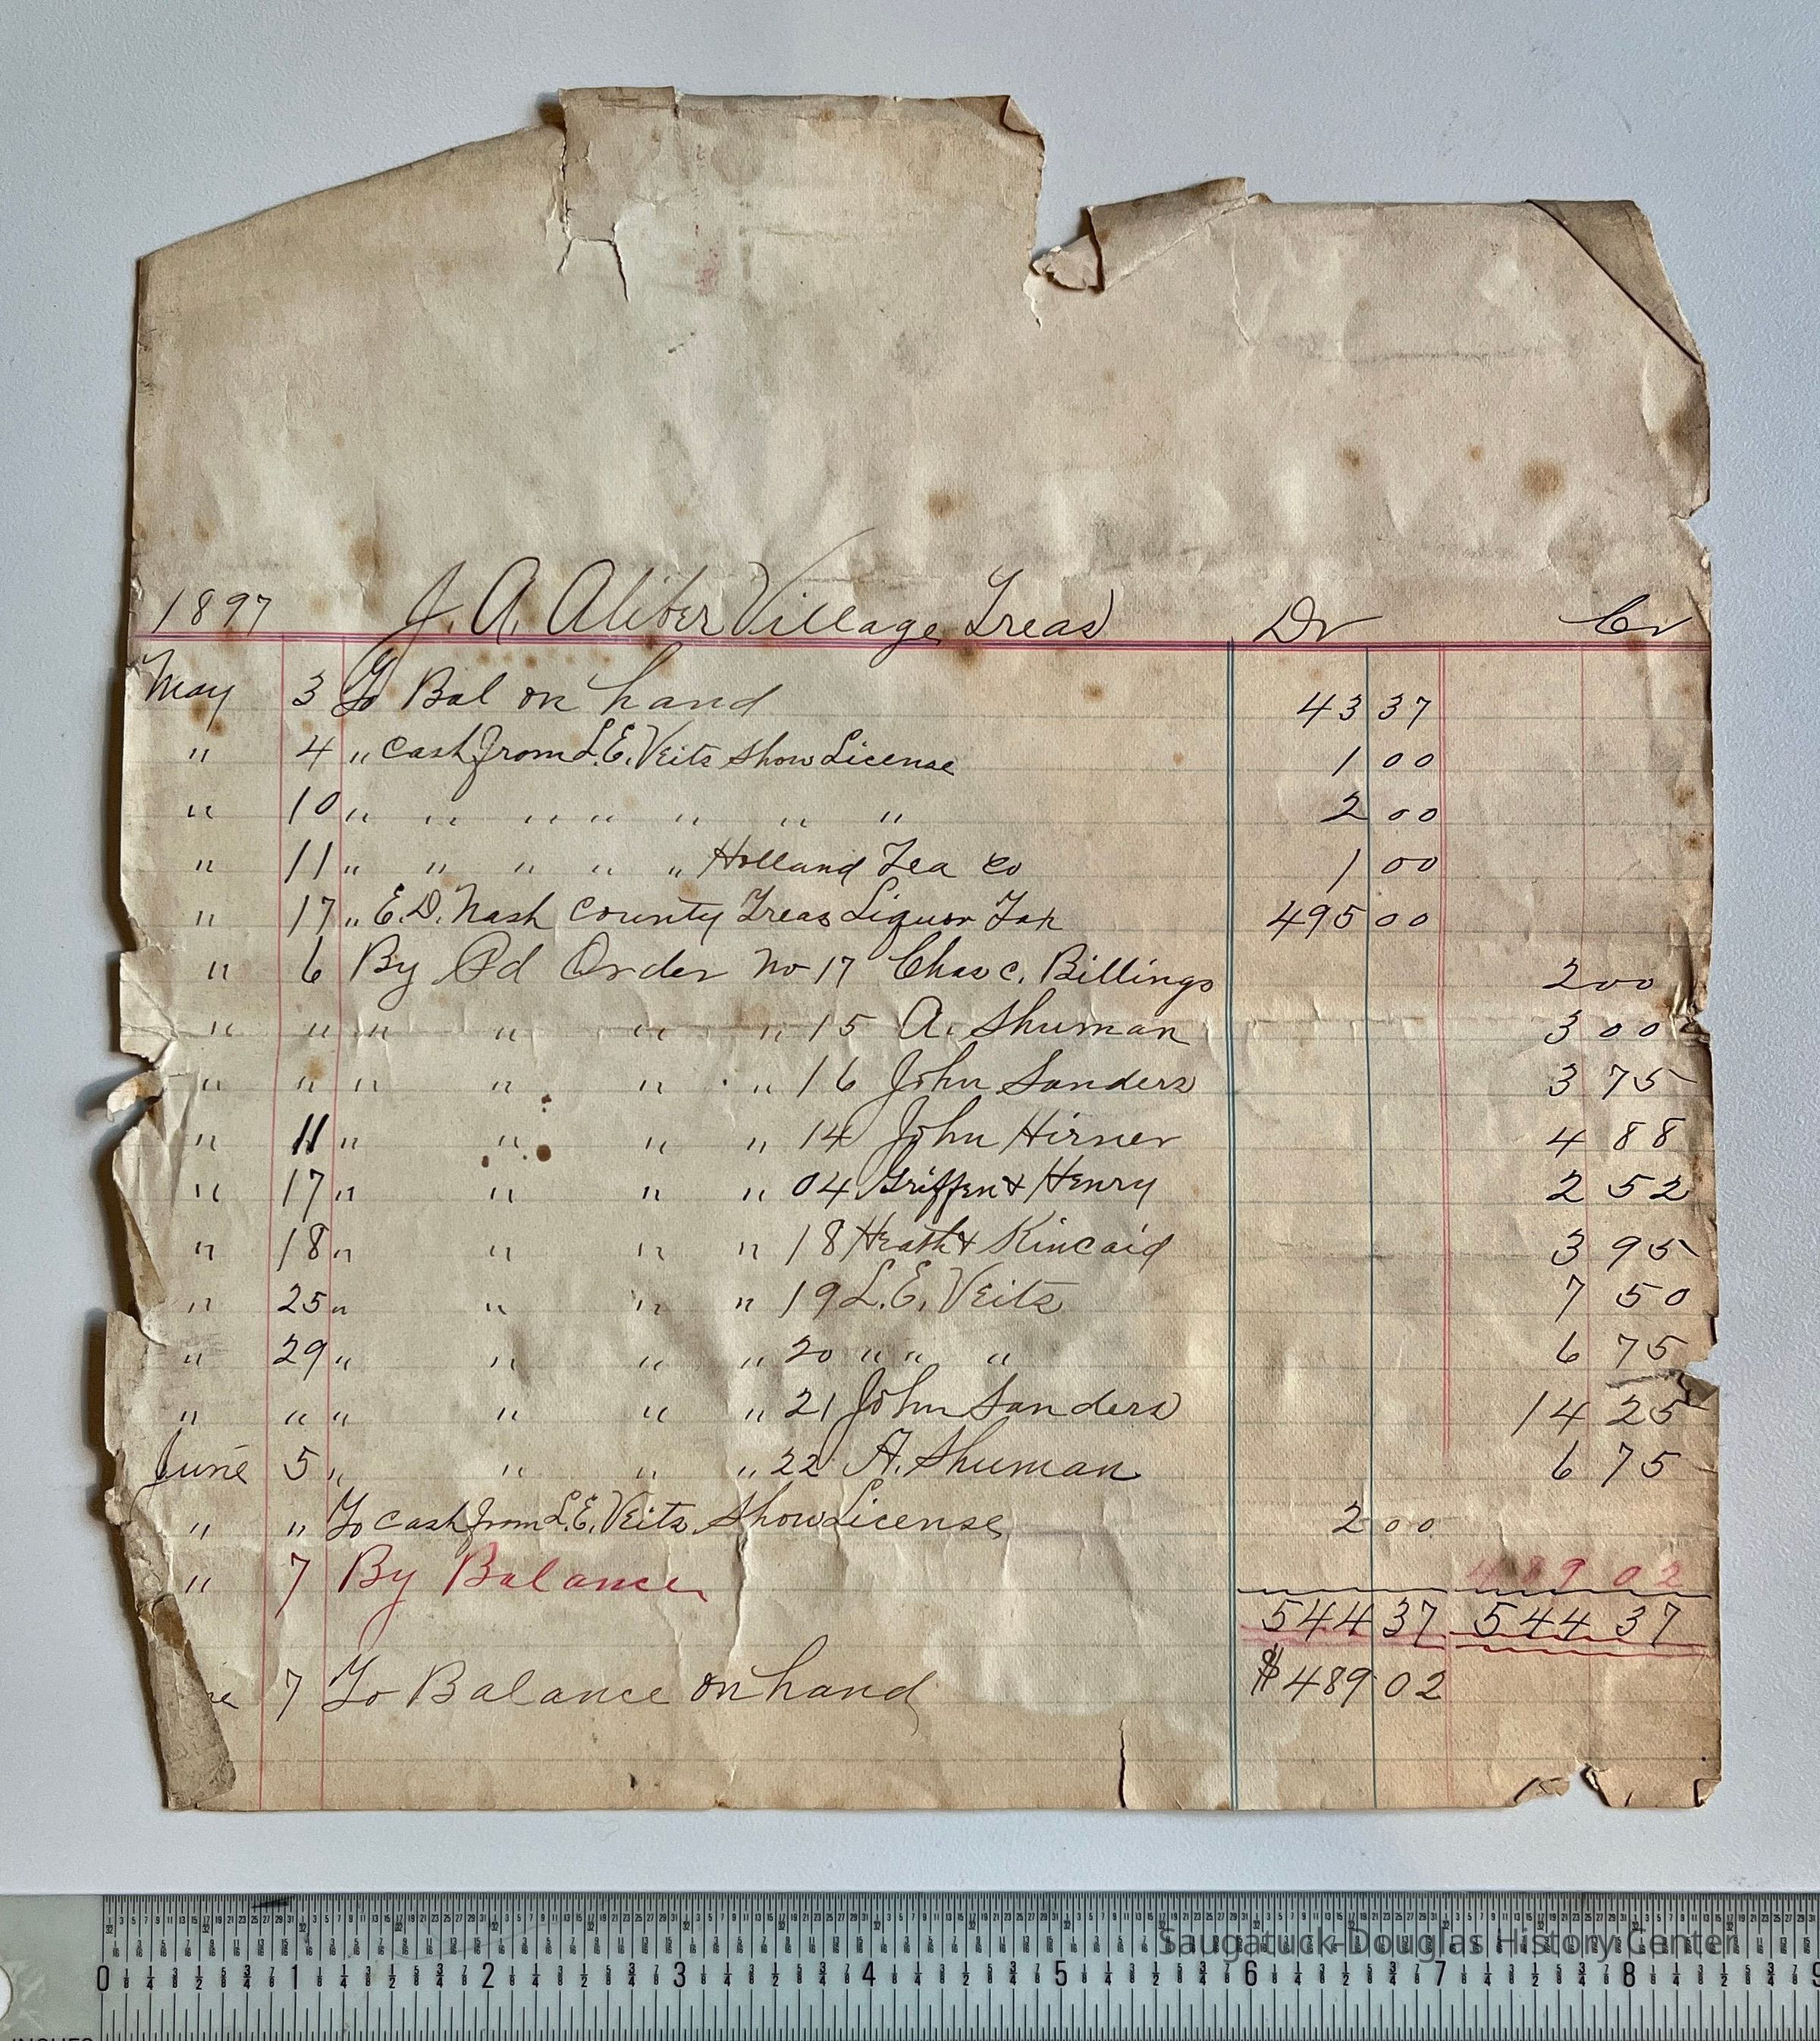 1897 J. A. Aliber Village Treas Dr Cr
May 3 To Bal on hand 43 37
" 4 " cash from L.E. Veits Show License 1 00
" 10 " " " " " " " 2 00
" 11 " " " " " Holland Tea Co 1 00
" 17 " E.D. Nash County Treas Liquor Tax 495 00
" 6 By Pd Order No 17 Chas C. Billings 2 00
" " " " " " 15 A. Shuman 3 00
" " " " " " 16 John Sanders 3 75
" 11 " " " " 14 John Hirner 4 88
" 17 " " " " 04 Griffen & Henry 2 52
" 18 " " " " 18 Heath & Kincaid 3 95
" 25 " " " " 19 L.E. Veits 7 50
" 29 " " " " 20 " " " 6 75
" " " " " " 21 John Sanders 14 25
June 5 " " " " 22 A. Shuman 6 75
" " To cash from L.E. Veits Show License 2 00
" 7 By Balance 489 02
544 37 544 37
ne 7 To Balance on hand $489 02
Saugatuck-Douglas History Center
0 1 2 3 4 5 6 7 8 9